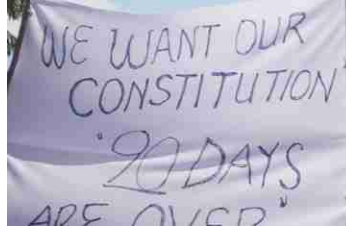 WE WANT OUR
CONSTITUTION
"90 DAYS
ARE OVER"